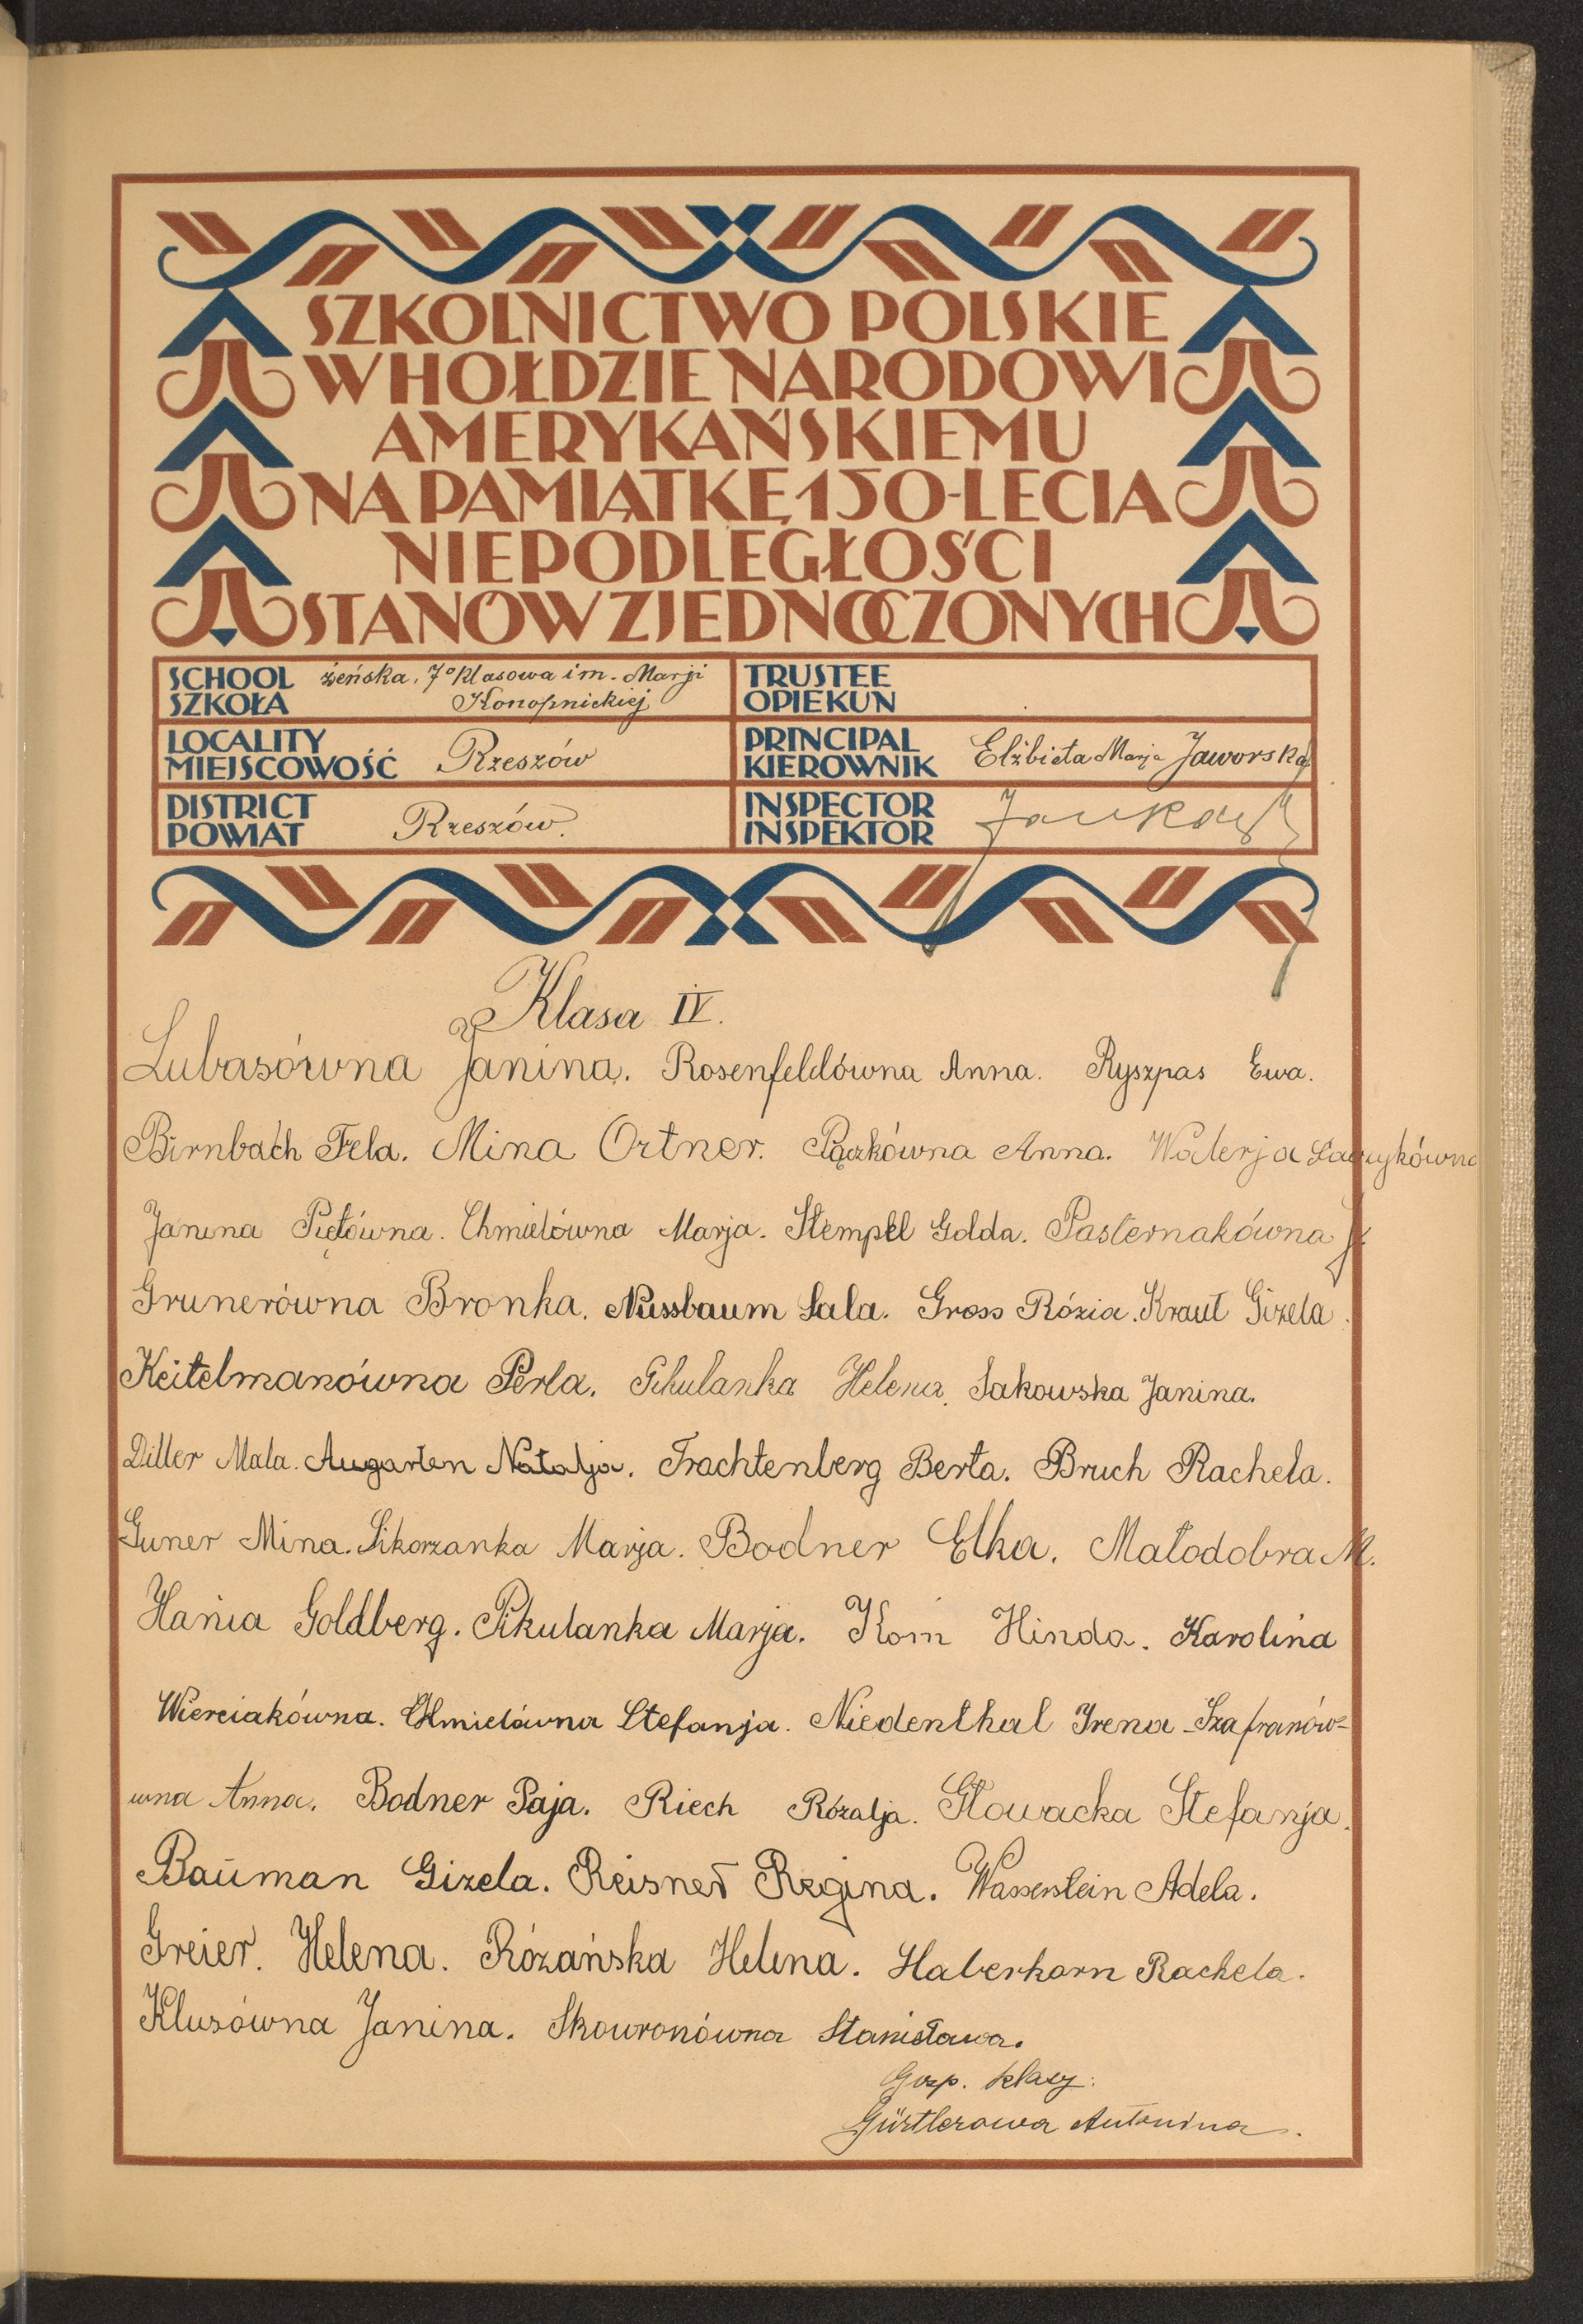 SZKOLNICTWO POLSKIE
W HOŁDZIE NARODOWI
AMERYKAŃSKIEMU
NA PAMIĄTKĘ 150-LECIA
NIEPODLEGŁOŚCI
STANÓW ZJEDNOCZONYCH
SCHOOL żeńska, 7o klasowa im. Marji
SZKOŁA Konopnickiej
TRUSTEE
OPIEKUN
LOCALITY
MIEJSCOWOŚĆ Rzeszów
PRINCIPAL
KIEROWNIK Elżbieta Marja Jaworska
DISTRICT
POWIAT Rzeszów.
INSPECTOR
INSPEKTOR
Klasa IV.
Lubasówna Janina. Rosenfeldówna Anna. Ryszpas Ewa.
Birnbach Fela. Mina Ortner. Pączkówna Anna.
Janina Piętówna. Chmielówna Marja. Stempel Golda. Pasternakówna J.
Grunerówna Bronka. Nussbaum Sala. Gross Rózia. Kraut Gizela.
Keitelmanówna Perla. Helena. Sakowska Janina.
Diller Mala. Augarten Natalja. Trachtenberg Berta. Bruch Rachela.
Guner Mina. Sikorzanka Marja. Bodner Elka. Małodobra M.
Hania Goldberg. Pikulanka Marja. Korn Hinda. Karolina
Wierciakówna. Chmielówna Stefanja. Niedenthal Irena Szafranów-
wna Anna. Bodner Paja. Riech Rózalja. Głowacka Stefanja.
Bauman Gizela. Reisner Regina. Wasserstein Adela.
Greier. Helena. Różańska Helena. Haberkorn Rachela.
Klusówna Janina. Skowronówna Stanisława.
Gosp. klasy:
Gürtlerowa Antonina.